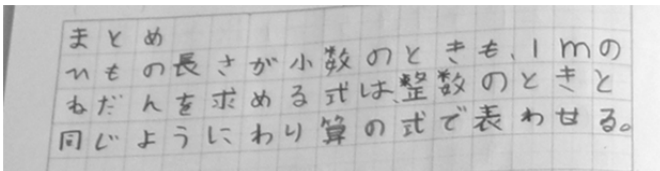 まとめ
ひもの長さが小数のときも、1mの
ねだんを求める式は、整数のときと
同じようにわり算の式で表わせる。